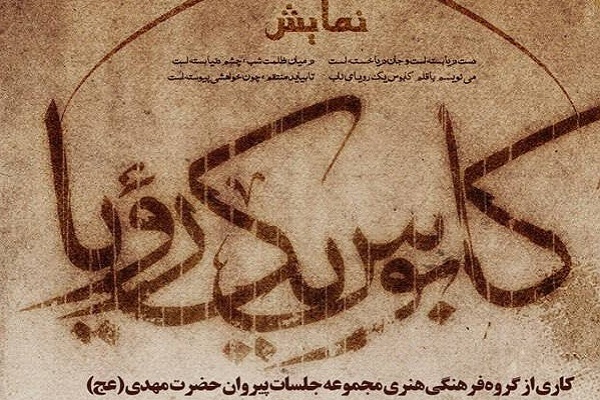 نمایش
دست دریا بسته است و جان دریا خسته است در میان ظلمت شب، چشم دنیا بسته است
می نویسم با قلم کابوس یک رویای ناب تا بیاید منتقم، چون خواهشی پیوسته است
کابوس یک رؤیا
کاری از گروه فرهنگی هنری مجموعه جلسات پیروان حضرت مهدی (عج)